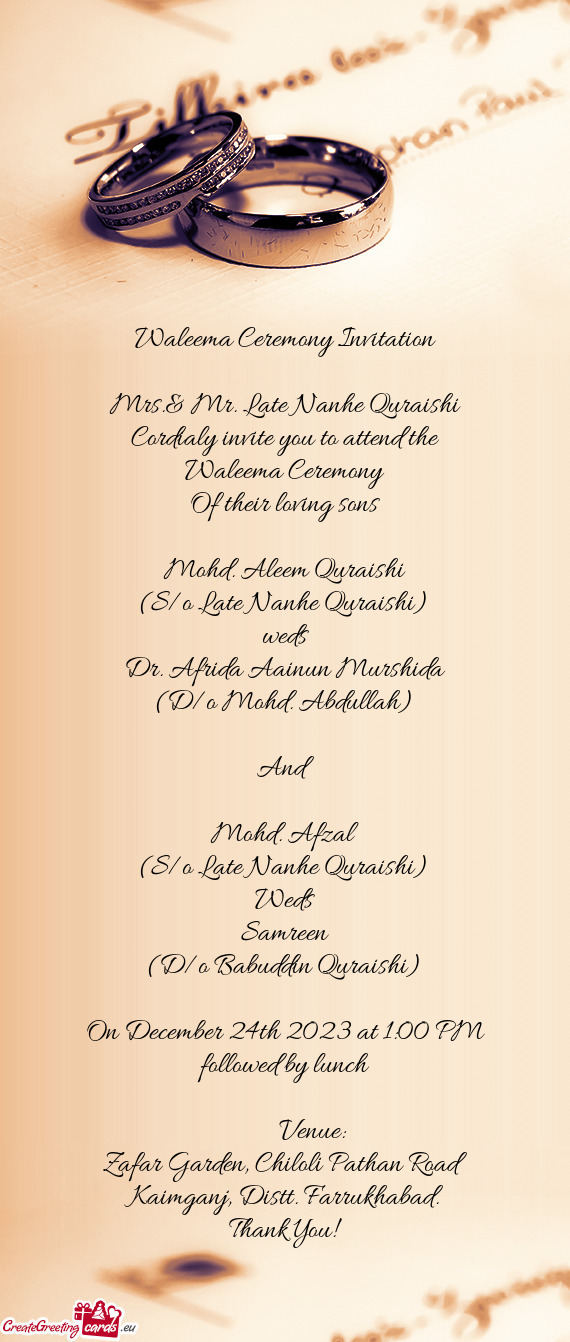 Waleema Ceremony Invitation
Mrs.& Mr. Late Nanhe Quraishi
Cordialy invite you to attend the
Waleema Ceremony
Of their loving sons
Mohd. Aleem Quraishi
(S/o Late Nanhe Quraishi)
weds
Dr. Afrida Aainun Murshida
(D/o Mohd. Abdullah)
And
Mohd. Afzal
(S/o Late Nanhe Quraishi)
Weds
Samreen
(D/o Babuddin Quraishi)
On December 24th 2023 at 1:00 PM
followed by lunch
Venue:
Zafar Garden, Chiloli Pathan Road
Kaimganj, Distt. Farrukhabad.
Thank You!
CreateGreeting cards .eu